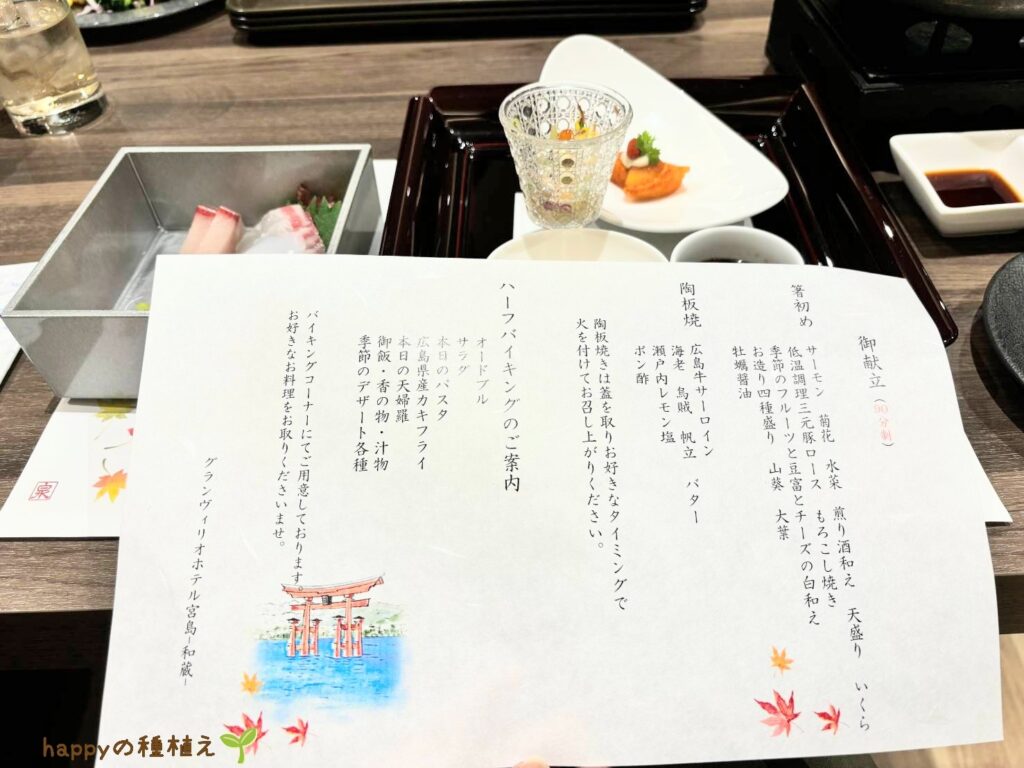 御献立(90分制)
箸初め
サーモン 菊花 水菜 煎り酒和え 天盛り いくら
低温調理三元豚ロース もろこし焼き
季節のフルーツと豆富とチーズの白和え
お造り四種盛り 山葵 大葉
牡蠣醤油
陶板焼
広島牛サーロイン
海老 烏賊 帆立 バター
瀬戸内レモン塩
ポン酢
陶板焼きは蓋を取りお好きなタイミングで
火を付けてお召し上がりください。
ハーフバイキングのご案内
オードブル
サラダ
本日のパスタ
広島県産カキフライ
本日の天婦羅
御飯・香の物・汁物
季節のデザート各種
バイキングコーナーにてご用意しております。
お好きなお料理をお取りくださいませ。
グランヴィリオホテル宮島-和蔵-
happyの種植え